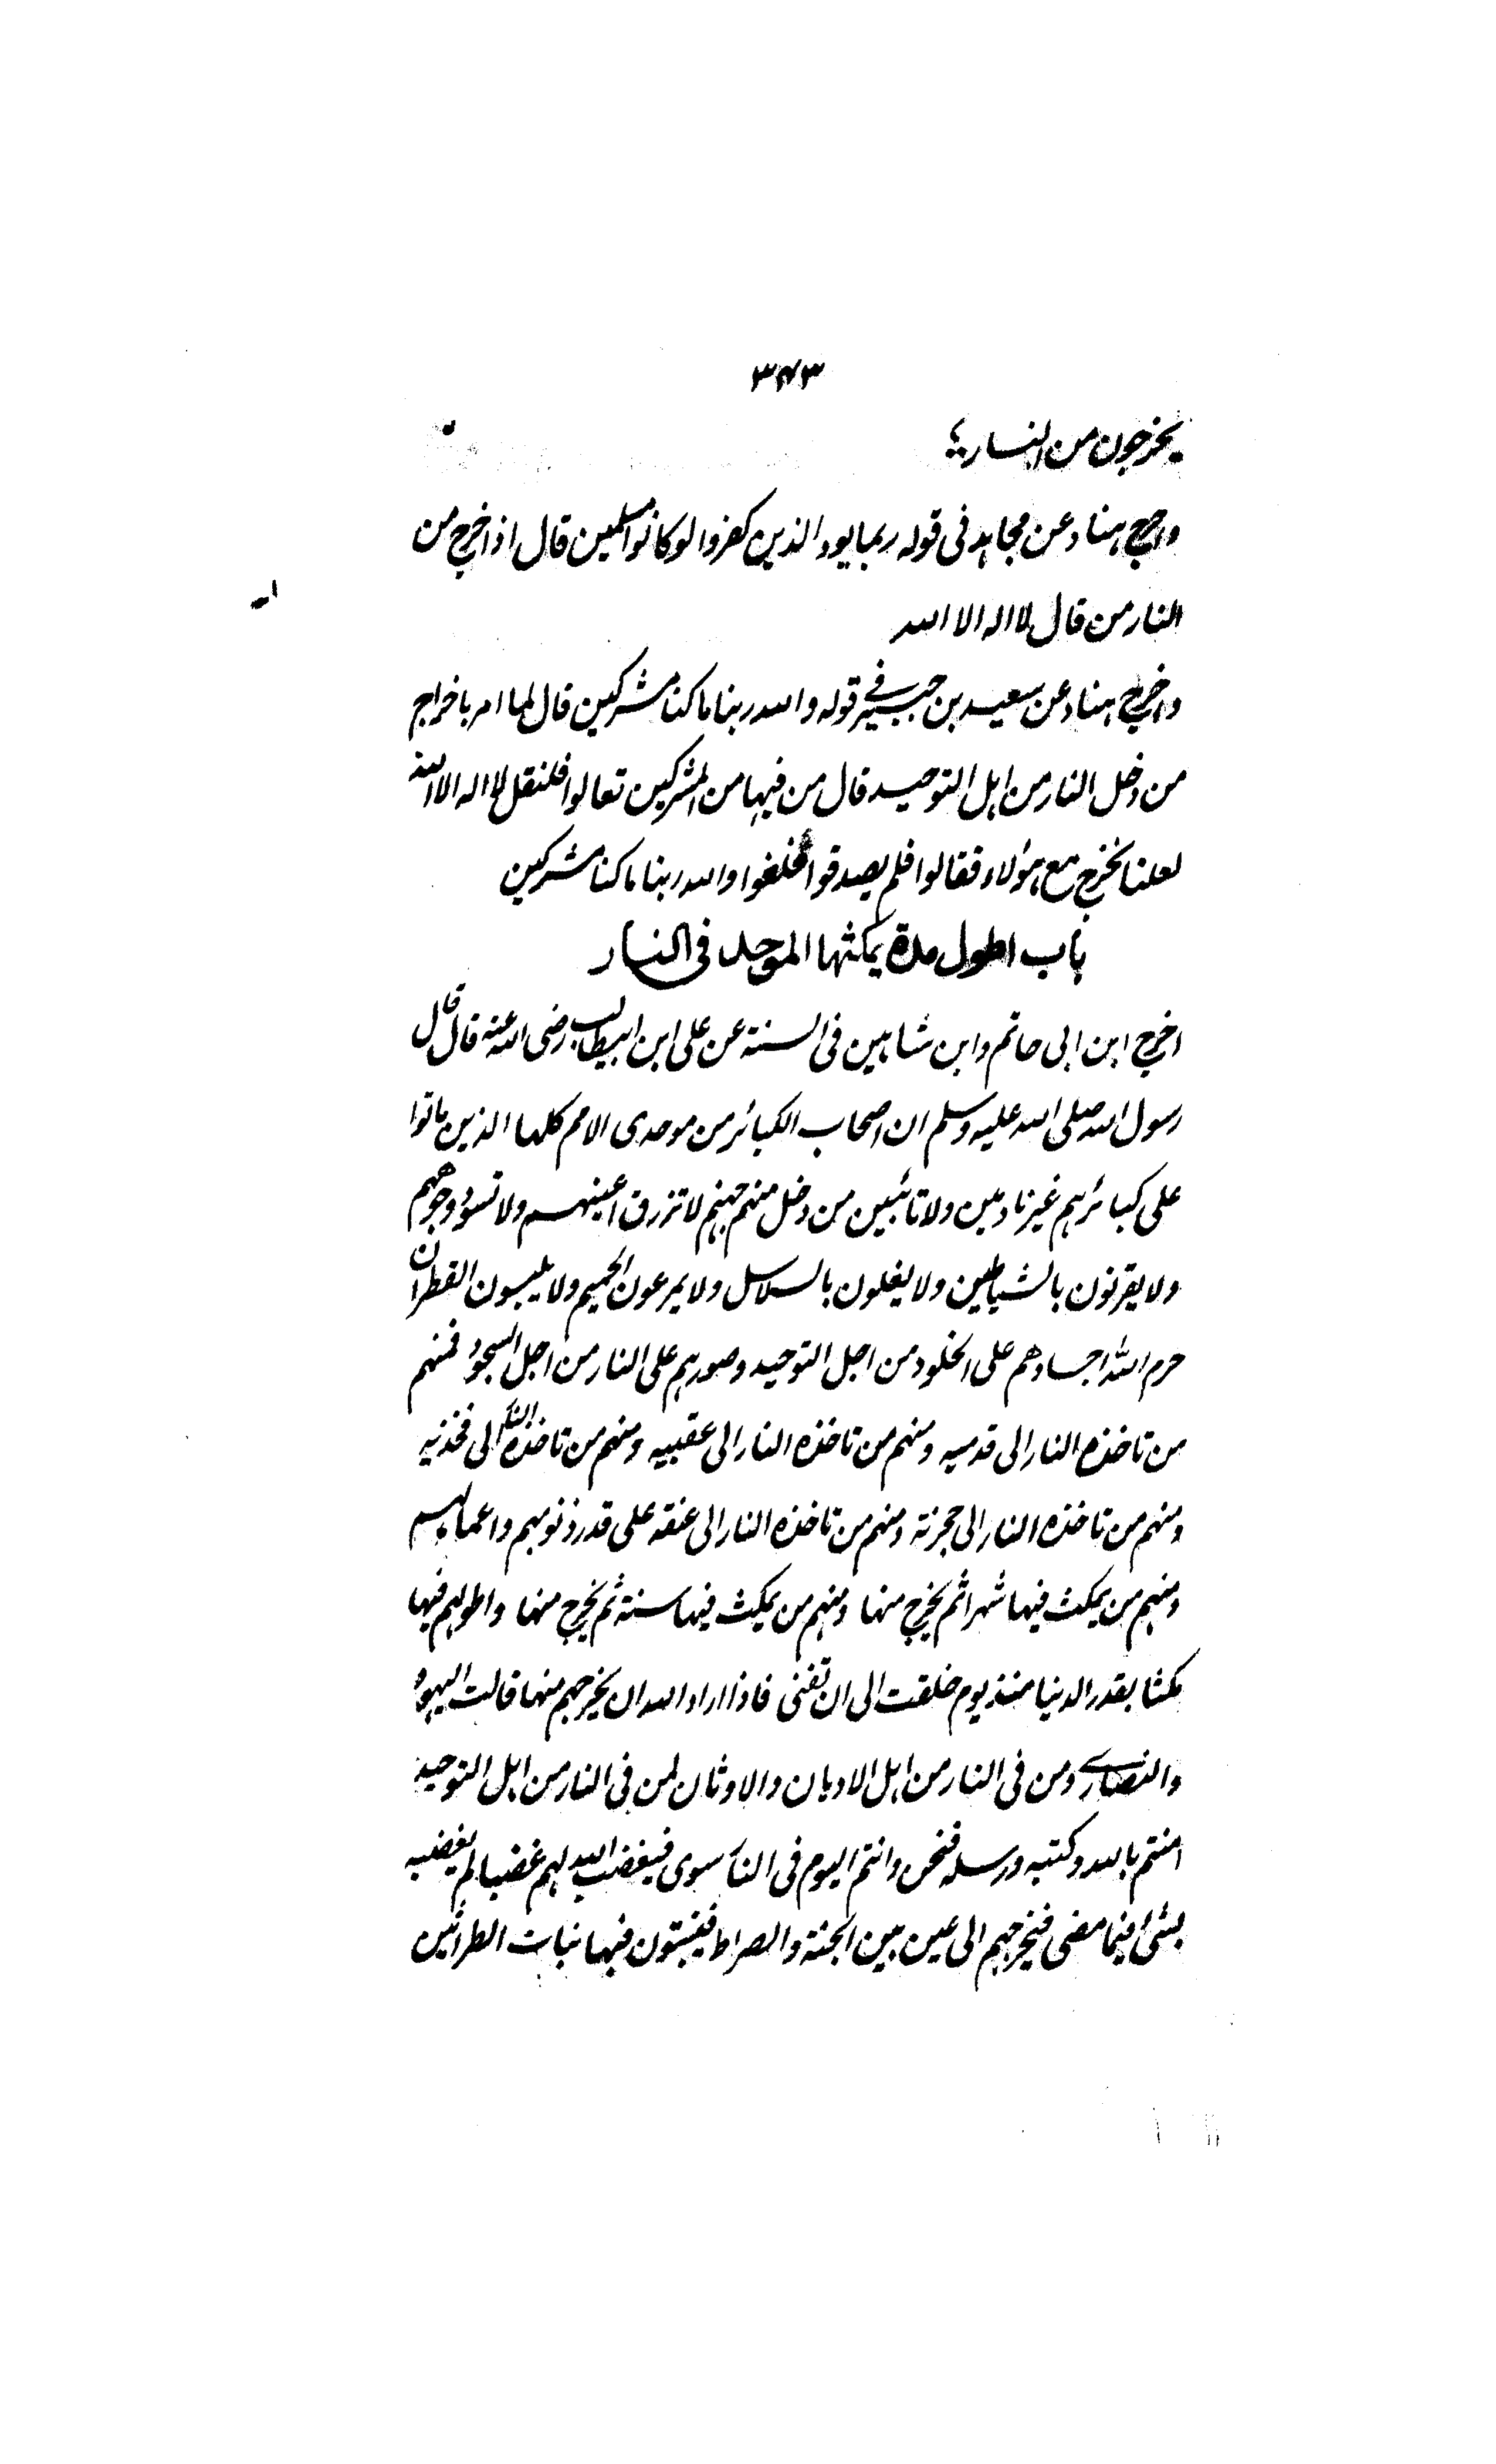 ٣٤٣
يخرجون من النار؛
واخرج هناد عن مجاهد فى قوله ربما يود الذين كفروا لو كانوا مسلمين قال اذا خرج من
النار من قال لا اله الا الله
واخرج هناد عن سعيد بن جبير فى قوله والله ربنا ما كنا مشركين قال لما امر باخراج
من دخل النار من اهل التوحيد قال من فيها من المشركين تعالوا فلنقل لا اله الا الله
لعلنا نخرج مع هؤلاء فقالوا فلم يصدقوا فحلفوا والله ربنا ما كنا مشركين
باب اطول مدة يمكثها الموحد فى النار
اخرج ابن ابى حاتم وابن شاهين فى السنة عن على ابن ابيطالب رضى الله عنه قال قال
رسول الله صلى الله عليه وسلم ان اصحاب الكبائر من موحدى الامم كلها الذين ماتوا
على كبائرهم غير نادمين ولا تائبين من دخل منهم جهنم لا تزرق اعينهم ولا تسود وجوههم
ولا يقرنون بالشياطين ولا يغلون بالسلاسل ولا يجرعون الحميم ولا يلبسون القطران
حرم الله اجسادهم على الخلود من اجل التوحيد وصورهم على النار من اجل السجود فمنهم
من تاخذه النار الى قدميه ومنهم من تاخذه النار الى عقبيه ومنهم من تاخذه النار الى فخذيه
ومنهم من تاخذه النار الى حجزته ومنهم من تاخذه النار الى عنقه على قدر ذنوبهم واعمالهم
ومنهم من يمكث فيها شهرا ثم يخرج منها ومنهم من يمكث فيها سنة ثم يخرج منها واطولهم فيها
مكثا بقدر الدنيا منذ يوم خلقت الى ان تفنى فاذا اراد الله ان يخرجهم منها قالت اليهود
والنصارى ومن فى النار من اهل الاديان والاوثان لمن فى النار من اهل التوحيد
امنتم بالله وكتبه ورسله فنحن وانتم اليوم فى النار سوى فيغضب الله لهم غضبا لم يغضبه
بشئ فيما مضى فيخرجهم الى عين بين الجنة والصراط فينبتون فيها نبات الطراثيث